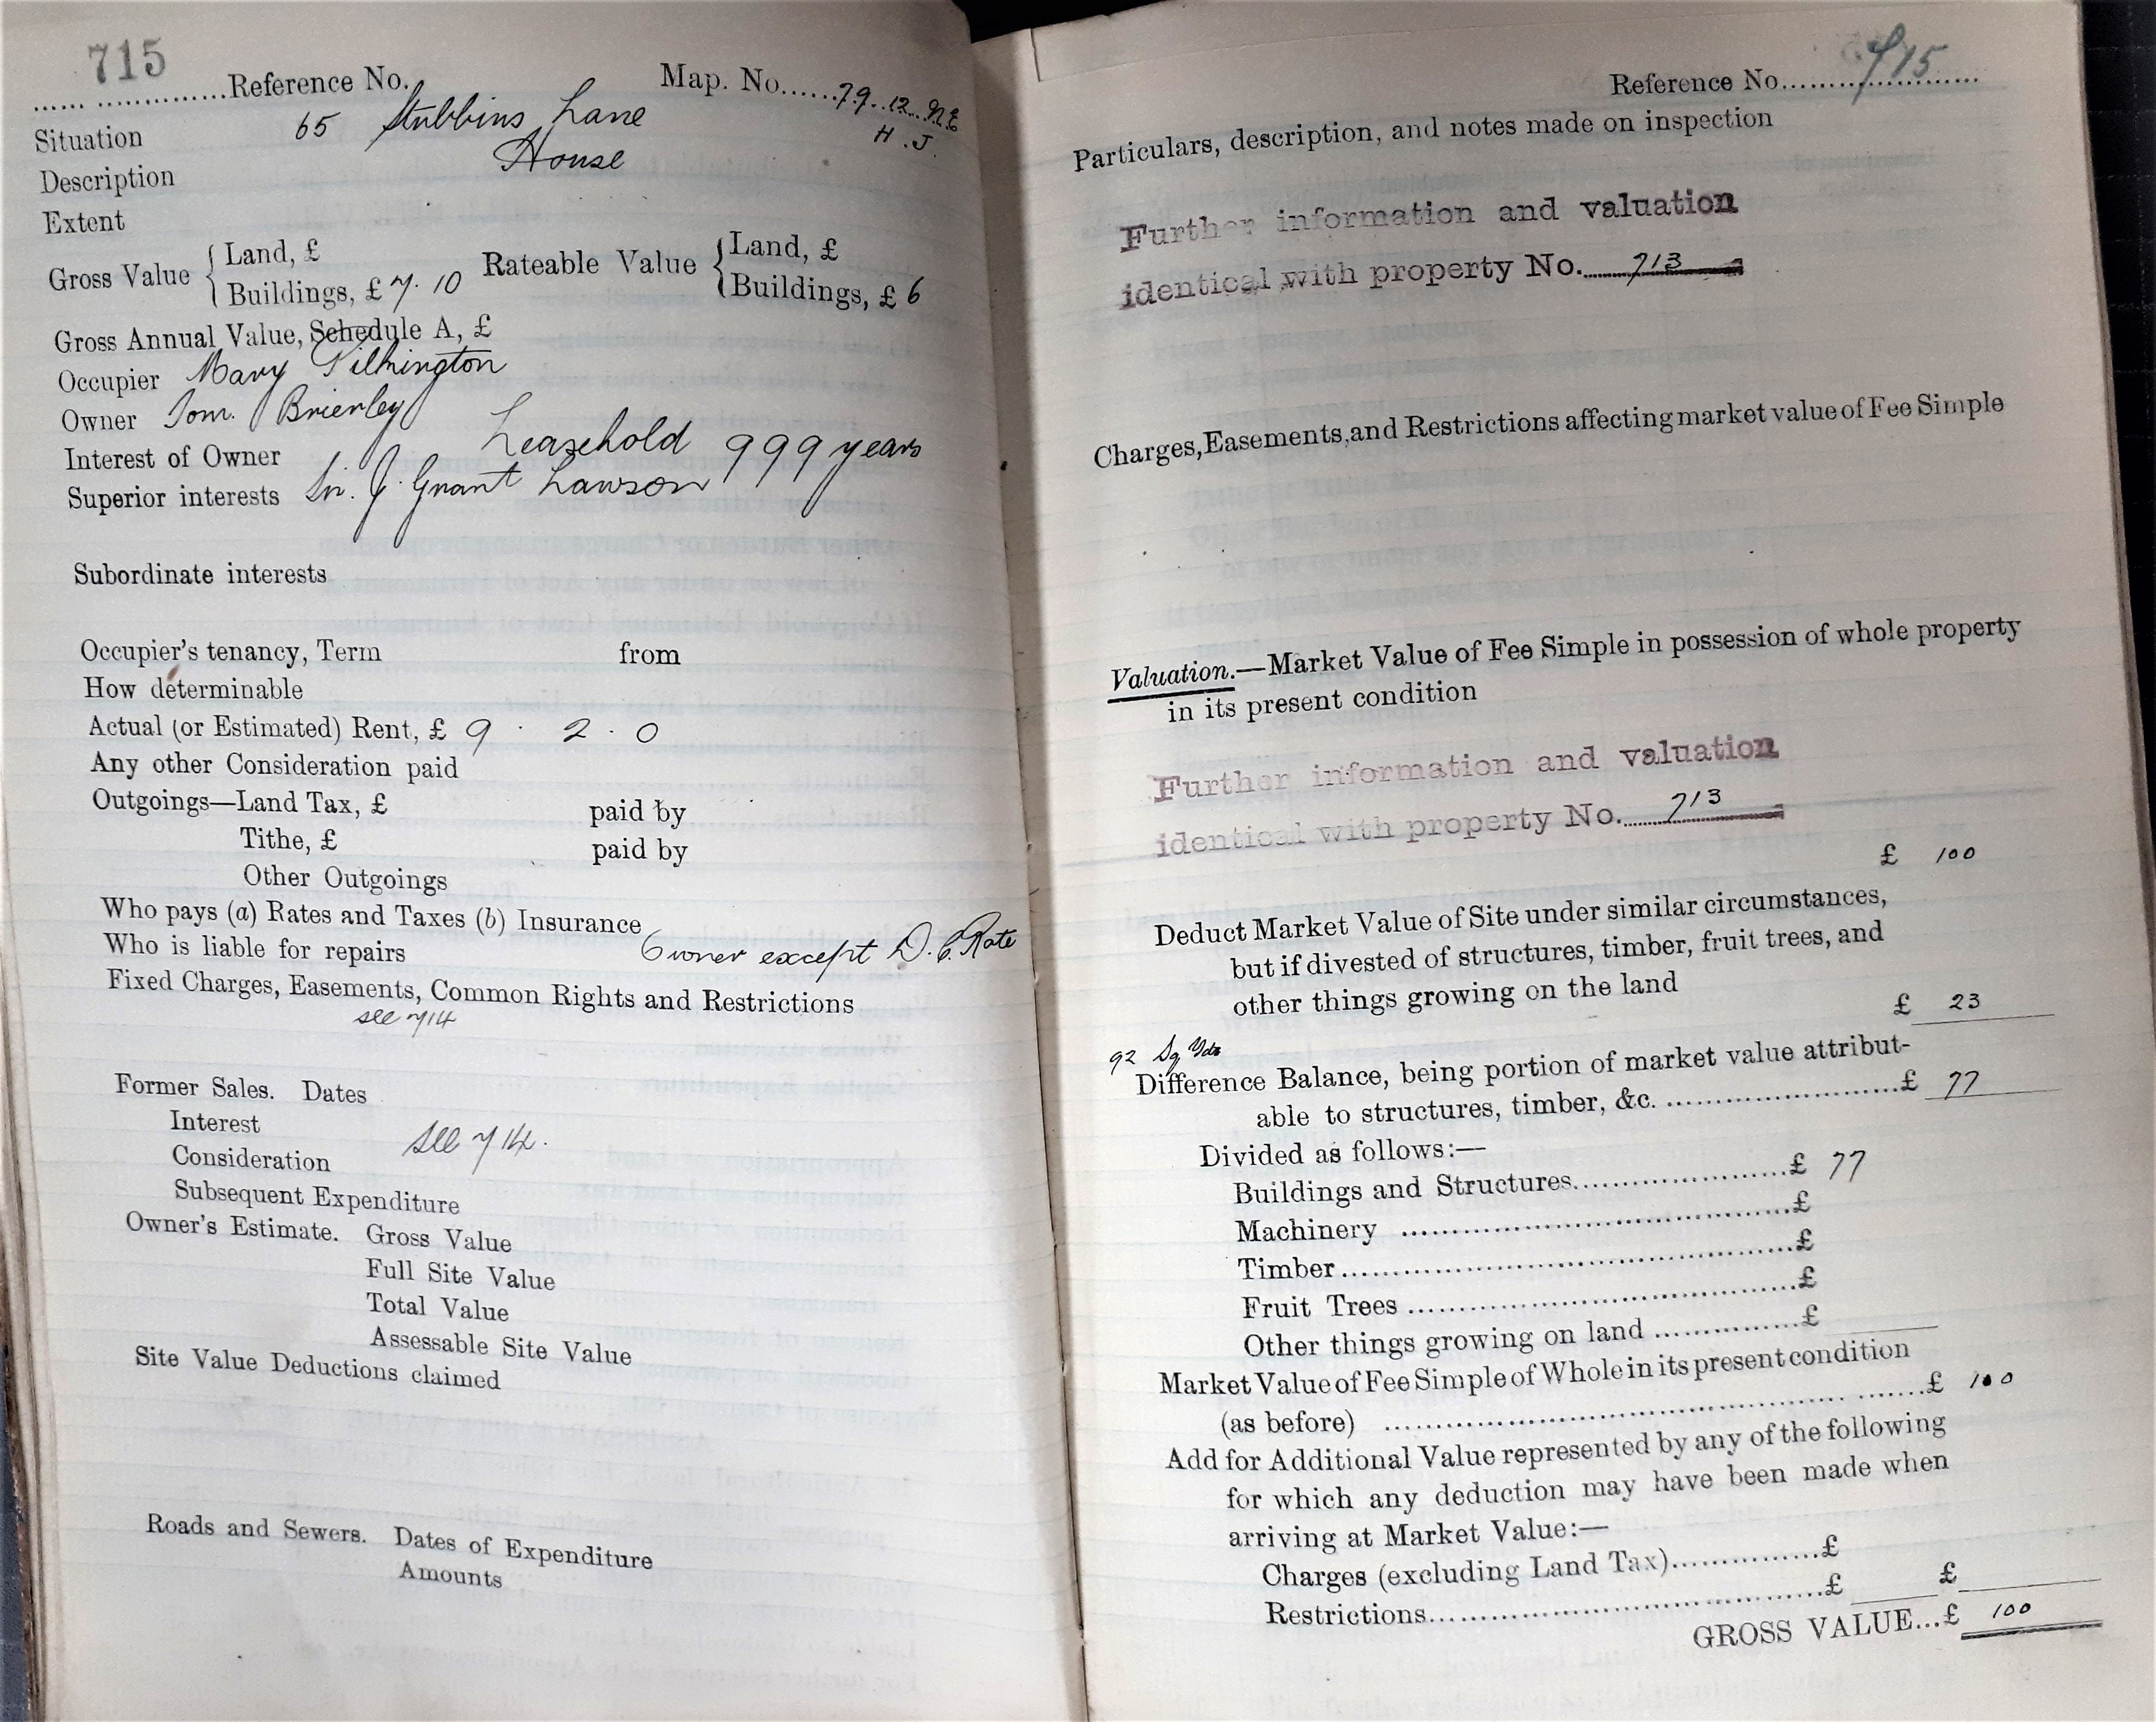 715
Reference No. Map. No. 79.12.N.E
H.J.
Situation 65 Stubbins Lane
Description House
Extent
Gross Value { Land, £ Rateable Value { Land, £
Buildings, £ 7.10 Buildings, £ 6
Gross Annual Value, Schedule A, £
Occupier Mary Pilkington
Owner Tom. Brierley
Interest of Owner Leasehold 999 years
Superior interests Sir. J. Grant Lawson
Subordinate interests
Occupier's tenancy, Term from
How determinable
Actual (or Estimated) Rent, £ 9 . 2 . 0
Any other Consideration paid
Outgoings—Land Tax, £ paid by
Tithe, £ paid by
Other Outgoings
Who pays (a) Rates and Taxes (b) Insurance
Who is liable for repairs Owner except D.C. Rate
Fixed Charges, Easements, Common Rights and Restrictions
see 714
Former Sales. Dates
Interest
Consideration see 714.
Subsequent Expenditure
Owner's Estimate. Gross Value
Full Site Value
Total Value
Assessable Site Value
Site Value Deductions claimed
Roads and Sewers. Dates of Expenditure
Amounts
Reference No. 715
Particulars, description, and notes made on inspection
Further information and valuation
identical with property No. 713
Charges, Easements, and Restrictions affecting market value of Fee Simple
Valuation.—Market Value of Fee Simple in possession of whole property
in its present condition
Further information and valuation
identical with property No. 713
£ 100
Deduct Market Value of Site under similar circumstances,
but if divested of structures, timber, fruit trees, and
other things growing on the land
£ 23
92 Sq Yds
Difference Balance, being portion of market value attribut-
able to structures, timber, &c. £ 77
Divided as follows:—
Buildings and Structures £ 77
Machinery £
Timber £
Fruit Trees £
Other things growing on land £
Market Value of Fee Simple of Whole in its present condition
(as before) £ 100
Add for Additional Value represented by any of the following
for which any deduction may have been made when
arriving at Market Value:—
Charges (excluding Land Tax) £
Restrictions £ £
GROSS VALUE...£ 100